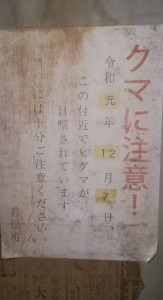 クマに注意!
令和元年12月7日、
この付近でヒグマが
目撃されています。
には十分ご注意ください。